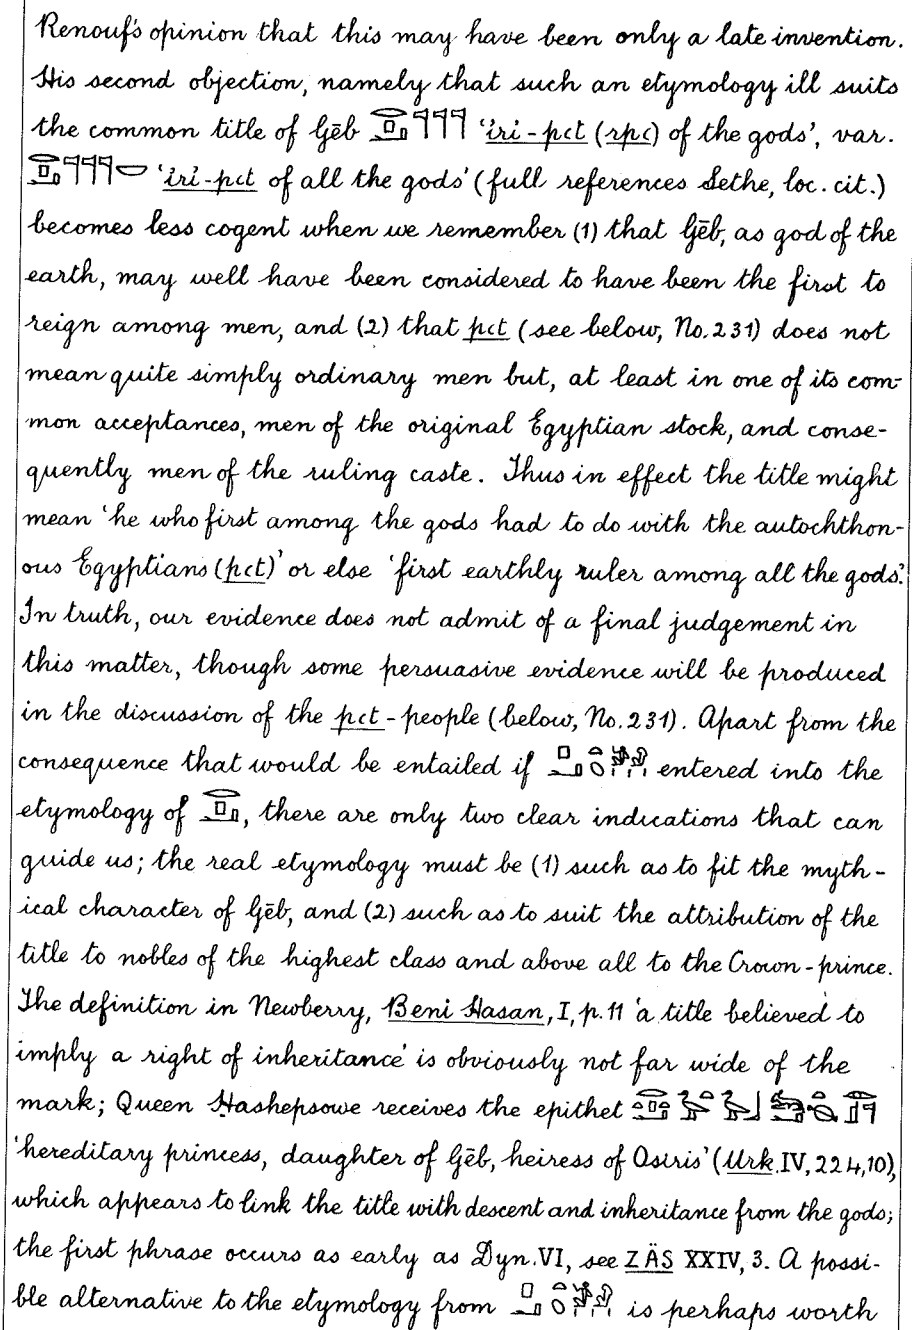 Renouf's opinion that this may have been only a late invention.
His second objection, namely that such an etymology ill suits
the common title of Gēb 'iri-pꜥt (rpꜥ) of the gods', var.
'iri-pꜥt of all the gods' (full references Sethe, loc. cit.)
becomes less cogent when we remember (1) that Gēb, as god of the
earth, may well have been considered to have been the first to
reign among men, and (2) that pꜥt (see below, No. 231) does not
mean quite simply ordinary men but, at least in one of its com-
mon acceptances, men of the original Egyptian stock, and conse-
quently men of the ruling caste. Thus in effect the title might
mean 'he who first among the gods had to do with the autochthon-
ous Egyptians (pꜥt)' or else 'first earthly ruler among all the gods'.
In truth, our evidence does not admit of a final judgement in
this matter, though some persuasive evidence will be produced
in the discussion of the pꜥt-people (below, No. 231). Apart from the
consequence that would be entailed if entered into the
etymology of , there are only two clear indications that can
guide us; the real etymology must be (1) such as to fit the myth-
ical character of Gēb, and (2) such as to suit the attribution of the
title to nobles of the highest class and above all to the Crown-prince.
The definition in Newberry, Beni Hasan, I, p. 11 'a title believed to
imply a right of inheritance' is obviously not far wide of the
mark; Queen Hashepsowe receives the epithet
'hereditary princess, daughter of Gēb, heiress of Osiris' (Urk. IV, 224, 10),
which appears to link the title with descent and inheritance from the gods;
the first phrase occurs as early as Dyn. VI, see ZÄS XXIV, 3. A possi-
ble alternative to the etymology from is perhaps worth